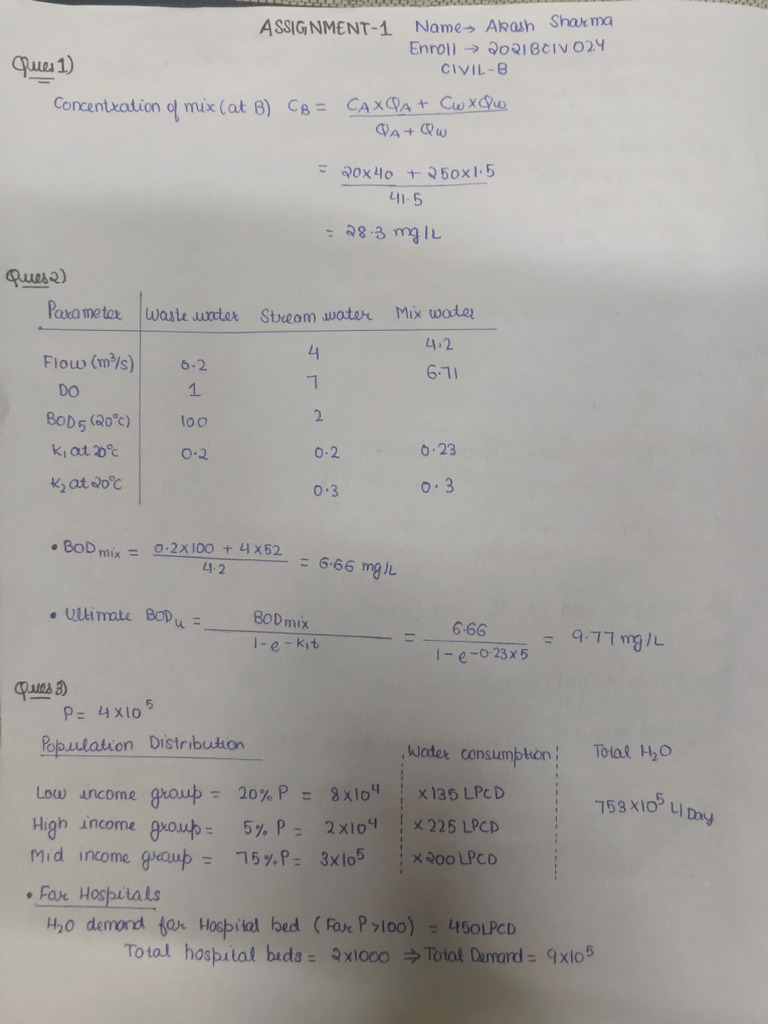 ASSIGNMENT-1 Name → Akash Sharma
Enroll → 2021BCIV024
CIVIL-B
Ques 1)
Concentration of mix (at B) CB = CA×QA + Cw×Qw
QA + Qw
= 20×40 + 250×1.5
41.5
= 28.3 mg/L
Ques 2)
Parameter Waste water Stream water Mix water
Flow (m³/s) 0.2 4 4.2
DO 1 7 6.71
BOD5 (20°C) 100 2
K1 at 20°C 0.2 0.2 0.23
K2 at 20°C 0.3 0.3
• BOD mix = 0.2×100 + 4×52 = 6.66 mg/L
4.2
• Ultimate BODu = BODmix = 6.66 = 9.77 mg/L
1-e-K1t 1-e-0.23×5
Ques 3)
P = 4×10⁵
Population Distribution Water consumption Total H2O
Low income group = 20% P = 8×10⁴ ×135 LPCD 753×10⁵ L/Day
High income group = 5% P = 2×10⁴ ×225 LPCD
Mid income group = 75% P = 3×10⁵ ×200 LPCD
• For Hospitals
H2O demand for Hospital bed (For P>100) = 450LPCD
Total hospital beds = 2×1000 ⇒ Total Demand = 9×10⁵